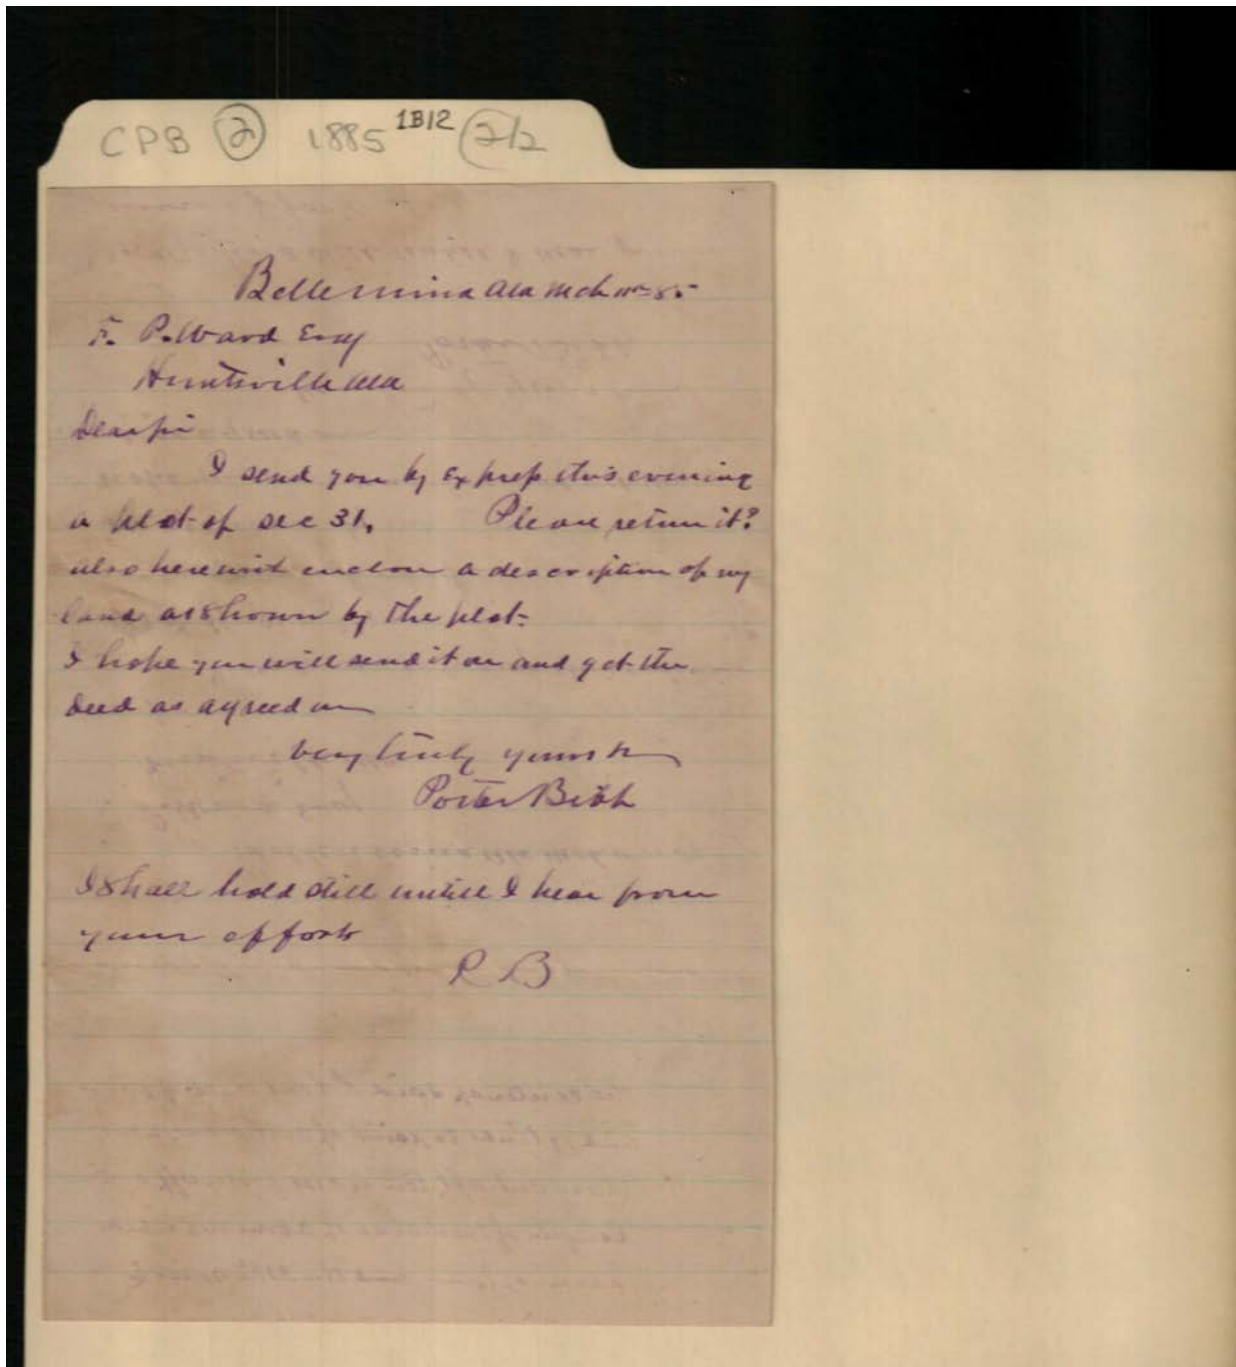 CPB 2 1885 1B12 2/2
Bellemina Ala Mch 11th 85
F. P. Ward Esqr
Huntsville Ala
Dear sir
I send you by Express this evening
a plot of sec 31. Please return it?
also herewith enclose a description of my
land as shown by the plot.
I hope you will send it on and get the
deed as agreed on
very truly yours
Porter Bibb
I shall hold still untill I hear from
your efforts
P B